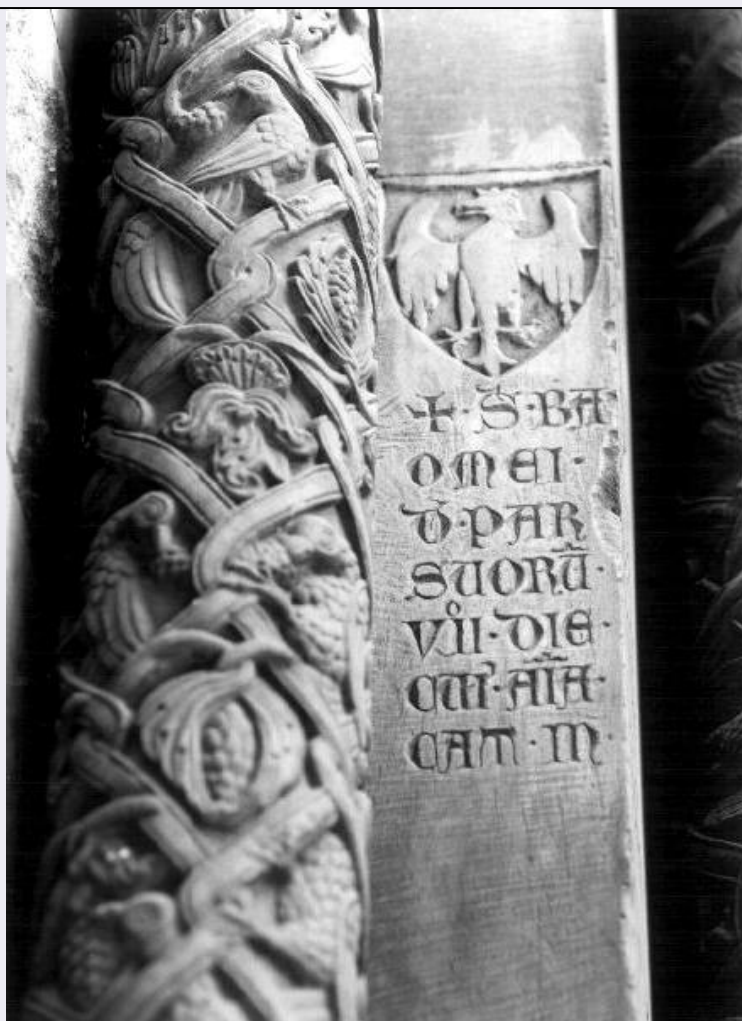 +·S̅·BA
OMEI·
D̅·PAR
SUORU̅·
VII·DIE·
CUI'·AI̅A·
CAT·IN·